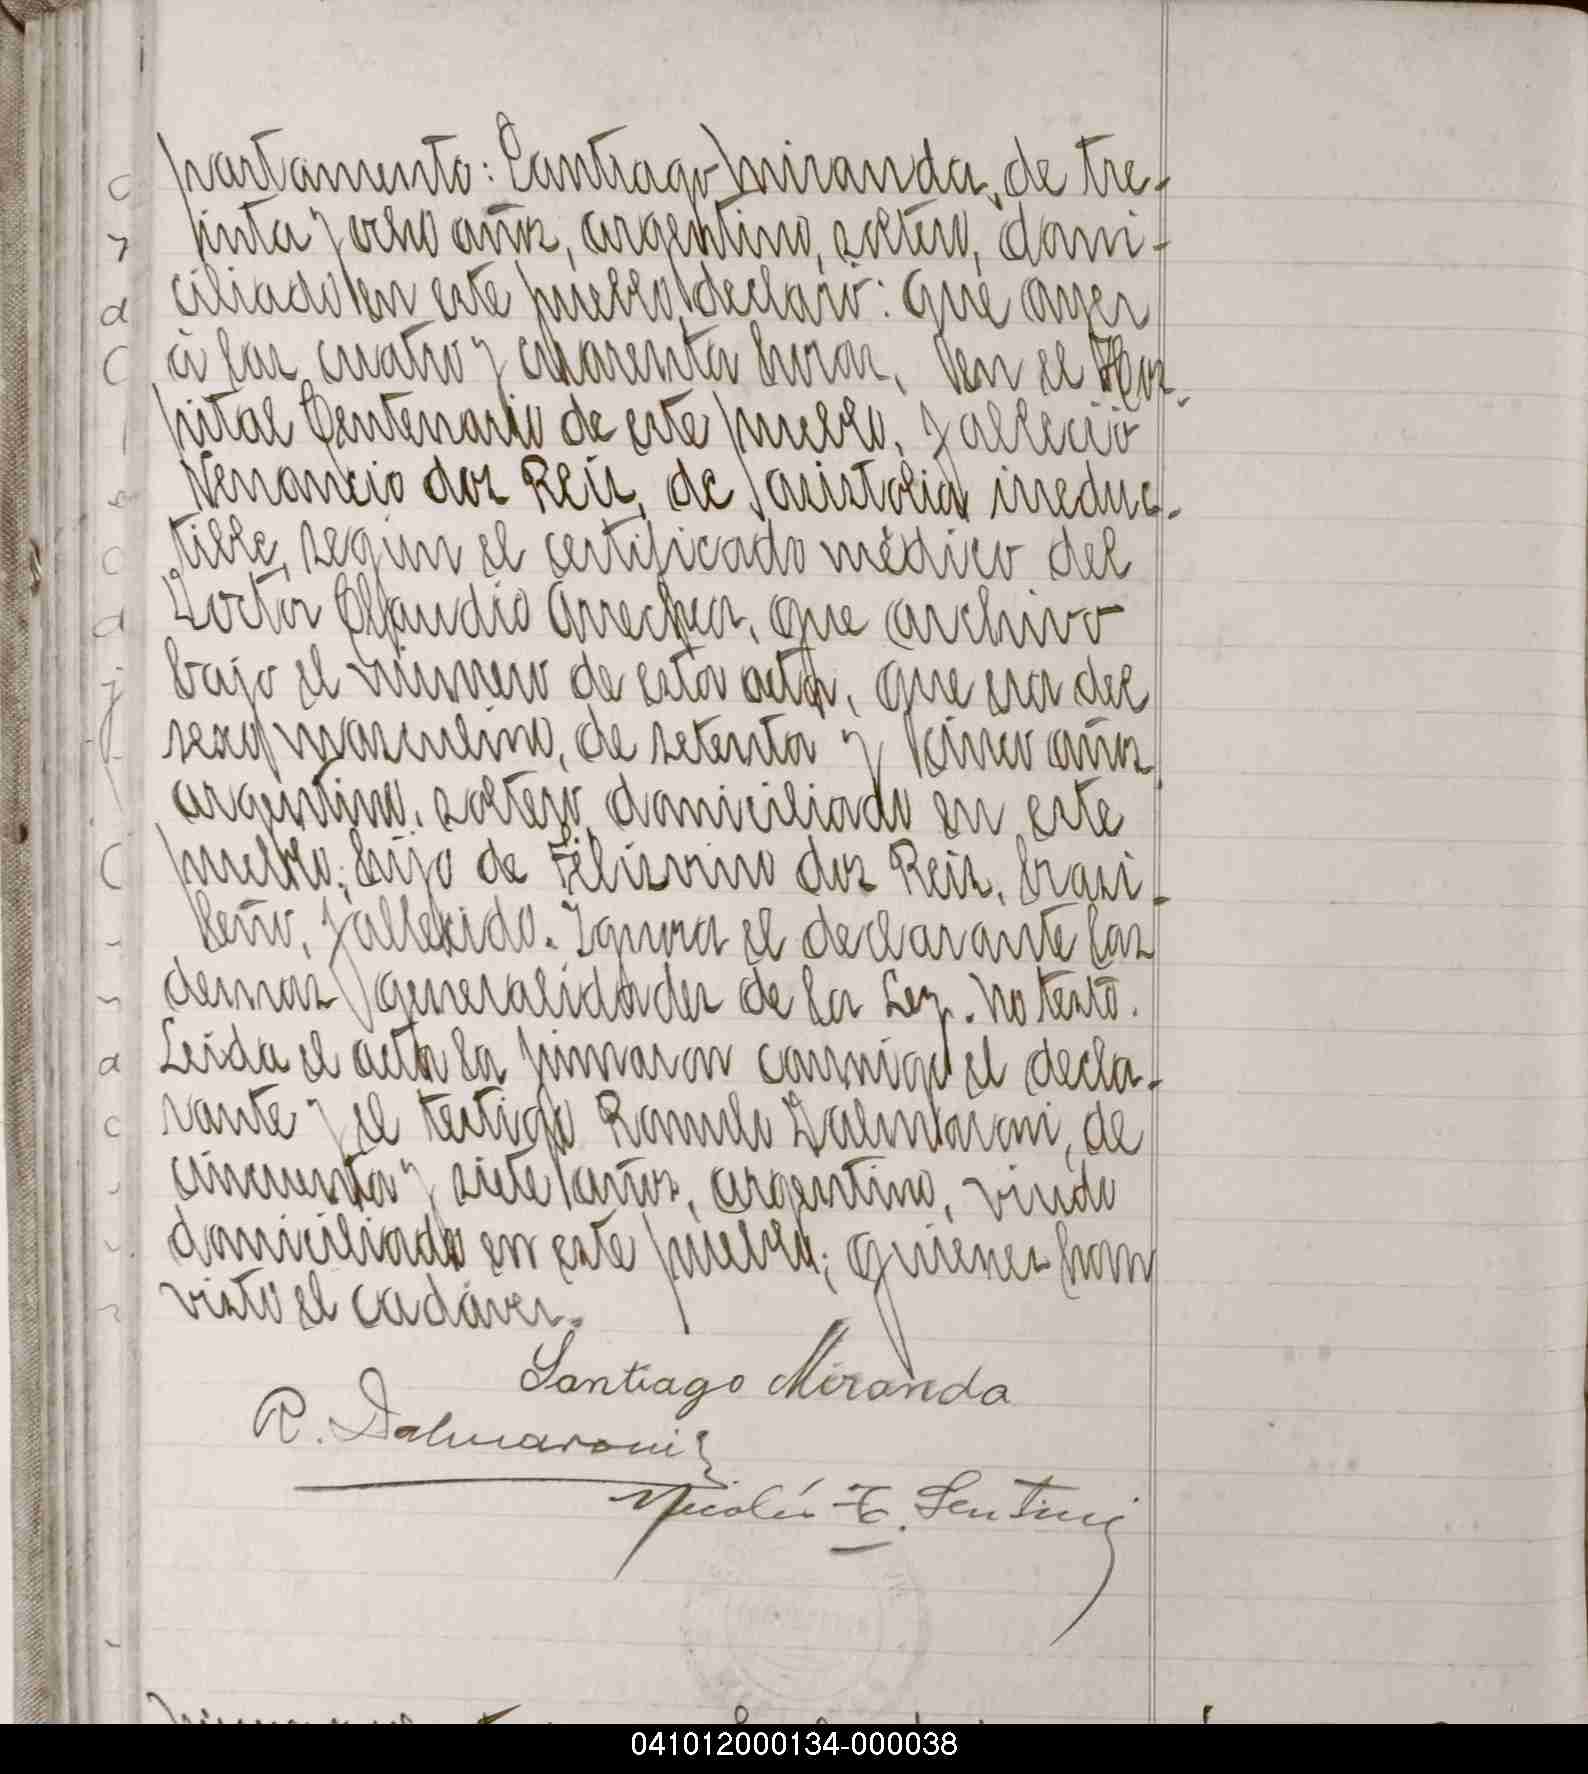 partamento: Santiago Miranda, de tre-
inta y ocho años, argentino, soltero, domi-
ciliado en este pueblo, declaró: Que ayer
á las cuatro y cuarenta horas, en el Hos-
pital Centenario de este pueblo, falleció
Venancio dos Reis, de asistolia irreduc-
tible, según el certificado médico del
Doctor Claudio Arrechea, que archivo
bajo el número de esta acta, que era del
sexo masculino, de setenta y cinco años
argentino, soltero, domiciliado en este
pueblo; hijo de Felisvino dos Reis, brasi-
leño, fallecido. Ignora el declarante las
demas generalidades de la Ley. No testó.
Leida el acta la firmaron conmigo el decla-
rante y el testigo Romulo Dalmaroni, de
cincuenta y siete años, argentino, viudo
domiciliado en este pueblo; quienes han
visto el cadáver.
Santiago Miranda
R. Dalmaroni
Nicolás E. Sentini
041012000134-000038